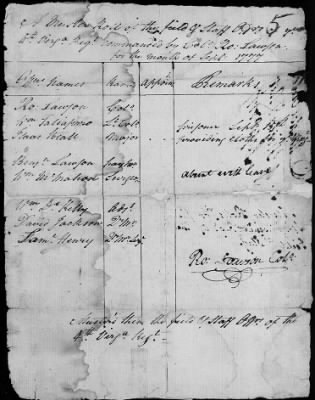 A Muster Roll of the field & Staff Offrs of ye
4th Virga Regt Commanded by Colo. Ro. Lawson
for the month of Sept. 1777
Names Rank Remarks
Ro. Lawson Colo.
Wm Taliaferro Lt Colo prisoner Sept.
Isaac Beall Major providing Cloths for ye
Benja Lawson
Wm Surgn absent with leave
Wm
David Jackson
Saml Henry
Ro. Lawson Colo.
Muster'd then the field & Staff Offrs of the
4th Virga Regt.